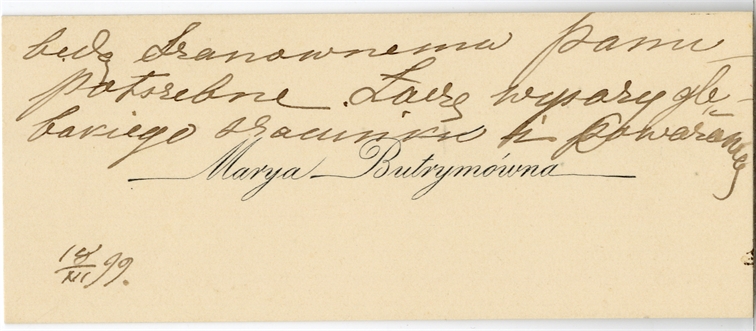 będą Szanownemu panu
potrzebne. Łączę wyrazy głę-
bokiego szacunku i poważania
Marya Butrymówna
XII 99.